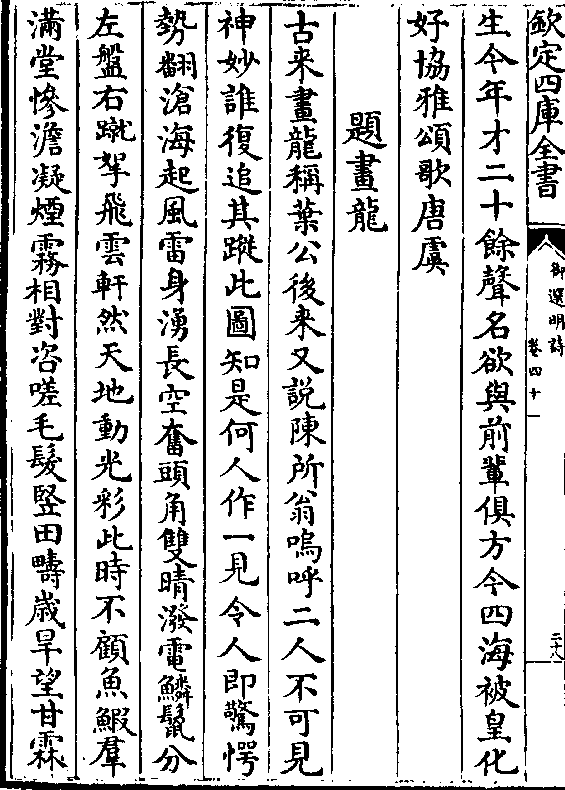 欽定四庫全書
御選明詩
卷四十一
二十八
生今年才二十餘聲名欲與前輩俱方今四海被皇化
好協雅頌歌唐虞
題畫龍
古来畫龍稱葉公後来又說陳所翁嗚呼二人不可見
神妙誰復追其蹤此圖知是何人作一見令人即驚愕
勢翻滄海起風雷身湧長空奮頭角雙晴潑電鱗鬣分
左盤右蹴拏飛雲軒然天地動光彩此時不顧魚鰕羣
滿堂慘澹凝煙霧相對咨嗟毛髮竪田疇歲旱望甘霖